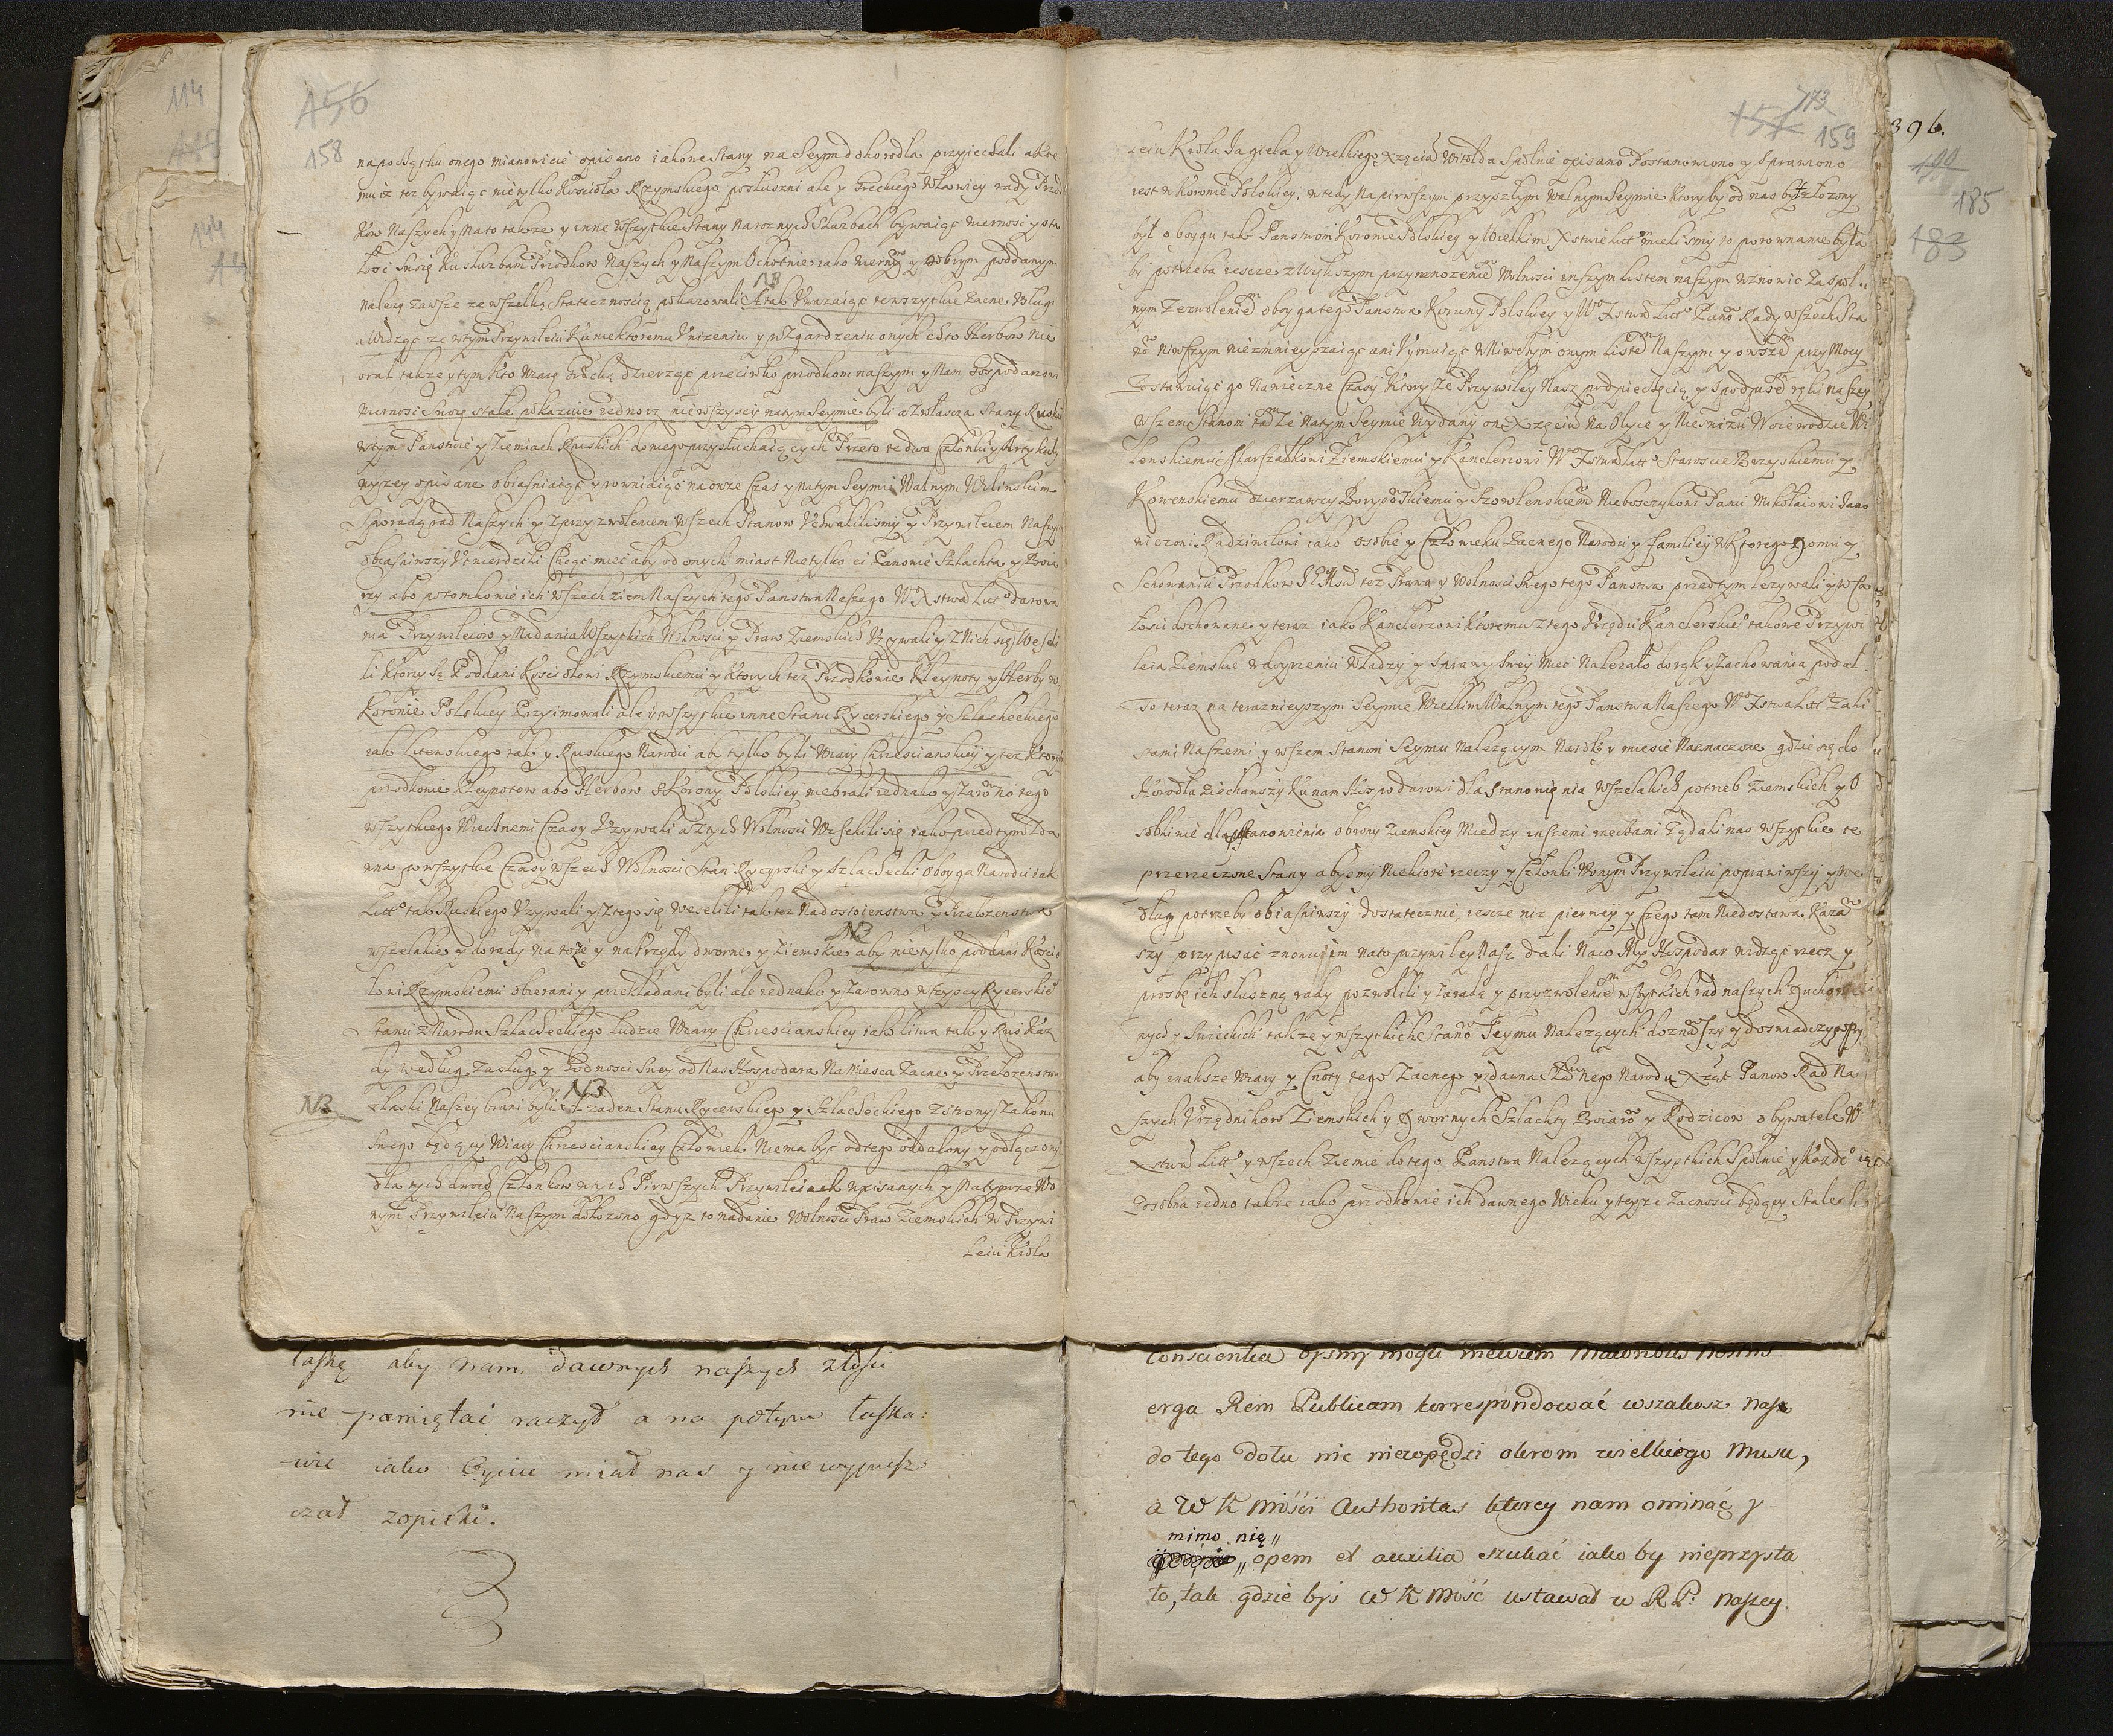 114
156
158
na początku onego mianowicie opisano iakowe Stany na Seym do horodla przyiechali akte
mu iz tez bywaiąc nie tylko Kosciola Rzymskiego posluszni ale y Greckiego w Ławicy rady Przod
kow Naszych y Nato takze y inne wszytkie Stany Naroznych Sluzbach bywaiąc wiernosc y sta
łosc swoię Ku sluzbam Przodkow Naszych y Naszym Ochotnie iako wiernym y dobrym poddanym
NB
nalezy zawsze ze wszelką Statecznoscią pokazowali A tak Uwazaiąc te wszytkie Zacne Uslugi
a Widząc ze wtym Przywileiu Ku niektoremu Unizeniu y wzgardzeniu onych Chto Herbow Nie
brał takze y tym Kto Wiarę Grecką dzierząc przeciwko przodkom naszym y Nam Gospodarowi
Wiernosc Swoię stale pokazuie iednosz nie wszyscy natym Seymie byli a zwłascza Stany Ruskie
wtym Panstwie y Ziemiach Ruskich do niego przysluchaiących Przeto te dwa Członki y Artykuły
wyzey opisane obiasniaiąc y rowniaiąc na on ze Czas y natym Seymie Walnym Wilenskim
Sporadą rad Naszych y z przyzwoleniem wszech Stanow Uchwalilismy y Przywileiem Naszym
obiasniwszy Utwierdzili Chcąc miec aby od onych miast Nietylko ci Panowie Szlachta y Boia
rzy abo potomkowie ich wszech ziem Naszych tego Panstwa Naszego W X stwa Litt° darowa
nia Przywileiow y Nadania Wszytkich Wolnosci y Praw Ziemskich Uzywali y z Nich się Weseli
li Ktorzy są Poddani Kosciołowi Rzymskiemu y Ktorych tez Przodkowie Kleynoty y Herby w
Koronie Polskiey Przyimowali ale y wszytkie inne Stanu Rycerskiego y Szlacheckiego
iako Litewskiego tak y Ruskiego Narodu aby tylko byli Wiary Chrzescianskiey y tez Ktorych
przodkowie Kleynotow abo Herbow z Korony Polskiey nie brali iednako y zarowno tego
wszytkiego Wiecznemi Czasy Uzywali a z tych Wolnosci Weselili się iako przedtym zda
wna po wszytkie Czasy wszech Wolnosci Stan Rycyrski y Szlachecki oboyga Narodu iak
Litt° tak Ruskiego Uzywali y z tego się weselili tak tez Nadostoienstwa y Przełozenstwa
NB
wszelakie y do rady na toze y na Urzędy dworne y Ziemskie aby nie tylko poddani Koscio
łowi Rzymskiemu obierani y przekładani byli ale iednako y zarowno wszyscy Rycerskie°
stanu z Narodu Szlacheckiego ludzie Wiary Chrzescianskiey iako Litwa tak y Rus Kaz
dy według Zasług y Godnosci Swey od Nas Hospodara Na Mieysca Zacne y Przełozenstwa
NB
NB
złaski Naszey brani byli A zaden Stanu Rycerskiego y Szlacheckiego z strony Zakonu
Swego będący Wiary Chrzescianskiey Człowiek Niema byc od tego oddalony y odłączony
dla tych dwoch Członkow w tych Pierwszych Przywileiach wpisanych y Natym rze Wo
nym Przywileiu Naszym dołozono gdyz to nadanie Wolnosci Praw Ziemskich w Przywi
leiu Krola
łaskę aby nam. dawnych naszych złości
nie pamiętać raczył a na potym łaska:
wie iako Oycue miał nas y nie wypusz
czał zopieki.
173
157 159
leiu Krola Jagiela y Wielkiego Xzęcia Witolda Spolnie opisano Postanowiono y Sprawiono
iest w Koronie Polskiey. wtedy Na pierwszym przyszłym Walnym Seymie ktory by od nas złozony
był oboygu tak Panstwom Koronie Polskiey y Wielkim X stwie Litt mielismy to porownanie była
by potrzeba iescze z Większym przymnozenie Wolnosci inszym listem naszym wznowic Za spol
nym Zezwolenie oboyga tego Panstwa Korony Polskiey y W° X stwa Litt° Pano Rady wszech Sta
no Niwszym niezmnieyszaiąc ani Uymuiąc w Niwczym onym liste Naszym y owsze przy Mocy
Zostawuiąc go Na wieczne Czasy Ktory ze Przywiley Nasz pod pieczęcią y Spodpise ręki naszey
wszem Stanom Natym Seymie Wydany on Xzęciu Na Olyce y Nieswizu Woiewodzie Wi
lenskiemu Marszałkowi Ziemskiemu y Kanclerzowi W° X stwa Litt° Staroscie Brzyskiemu y
Kowenskiemu dzierzawcy Borysowskiemu y Szowlenskiem Nieboszczykowi Panu Mikołaiowi Jano
wiczowi Radziwiłowi iako osobie y Człowieku Zacnego Narodu y familiey w Ktorego domu y
Schowaniu Przodkow tez Prawa y Wolnosci Swego tego Panstwa przedtym lezywali y w Ca
łosci dochowane y teraz iako Kanclerzowi Ktoremu z tego Urzędu Kanclerskie° takowe Przywi
leia Ziemskie w doyrzeniu władzy y Sprawy Swey miec Nalezało do rąk y Zachowania podał
To teraz na teraznieyszym Seymie Wielkim Walnym tego Panstwa Naszego W° X stwa Litt° Za li
stami Naszemi y wszem Stanom Seymu Nalezącym Na rok y miesie Naznaczone gdzie się do
Horodła Ziechawszy Ku nam Hospodarowi dla stanowięnia wszelakich potrzeb Ziemskich y O
sobliwie dla stanowienia obrony Ziemskiey Miedzy inszemi rzeczami Ządali nas wszytkie te
przerzeczone Stany abysmy Niektore rzeczy y Członki Wonym Przywileiu poprawiwszy y we
dług potrzeby obiasniwszy dostatecznie iescze niz pierwey y Czego tam Niedostawa Kaza
szy przypisac znowu im na to przywiley Nasz dali Na co My Hospodar widząc rzecz y
prosbę ich słuszną rady pozwolili y Zaradą y przyzwolenie wszytkich rad naszych Ducho
wnych y Swieckich takze y wszytkich Stano Seymu Nalezących doznawszy y doswiadczywszy
aby inaksze Wiary y Cnoty tego Zacnego y zdawna Sławnego Narodu Xząt Panow Rad Na
szych Urzędnikow Ziemskich y Dwornych Szlachty Boiaro y Rodzicow obywatele W°
X stwa Litt° y wszech Ziemie do tego Panstwa Nalezących wszystkich Spolnie y Kazde°
Zosobna iedno takze iako przodkowie ich dawnego Wieku y teyze Zacnosci będący Stale
conscientia bysmy mogli mewiem Maioribus nostris
erga Rem Publicam korrespondować wszakosz nasz
do tego dołu nie niewpędzi okrom wielkiego Musu,
a W K Mości Authoritas ktorey nam ominąć y
mimo nię„
„opem et auxilia szukać iako by nieprzysta
to, tak gdzie byś W K Mość ustawał w R P: naszey
396.
190
185
183